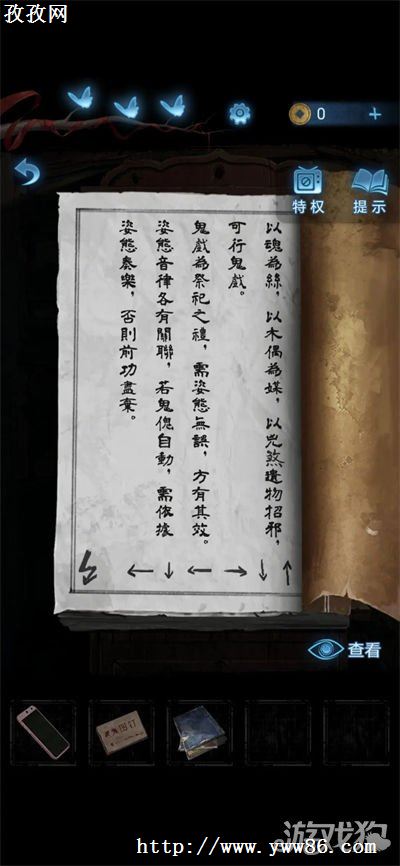 孜孜网
0
特权
提示
以魂為絲，以木偶為媒，以兇煞遺物招邪，
可行鬼戲。
鬼戲為祭祀之禮，需姿態無誤，方有其效。
姿態音律各有關聯，若鬼傀自動，需依據
姿態奏樂，否則前功盡棄。
查看
游戏狗
http://www.yww86.com